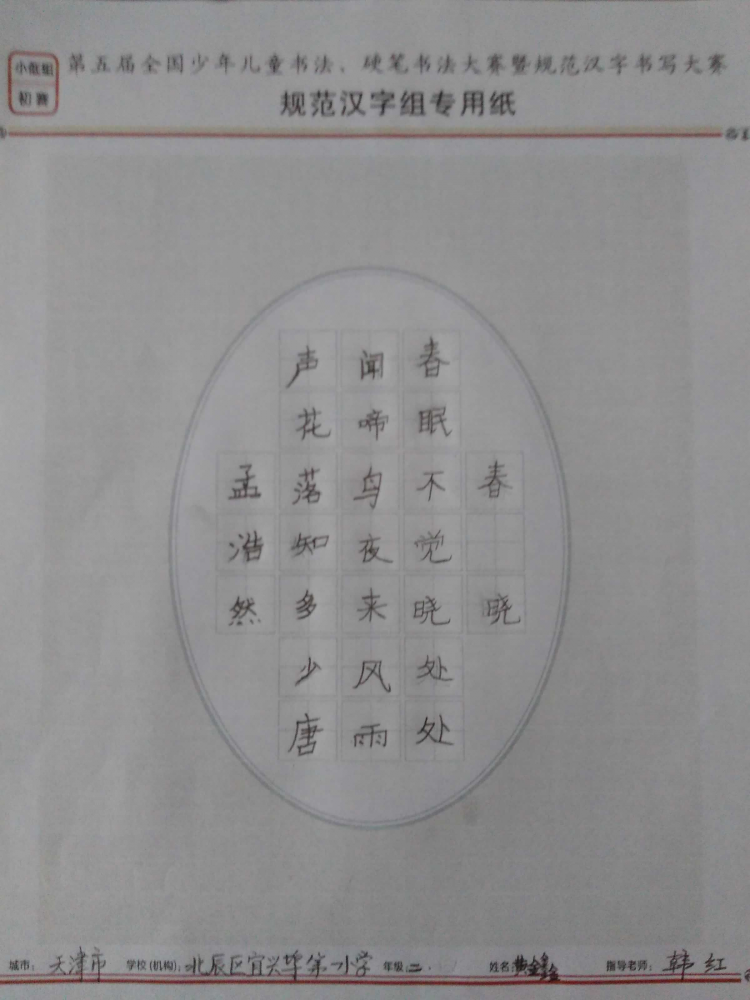 小低组
初赛
第五届全国少年儿童书法、硬笔书法大赛暨规范汉字书写大赛
规范汉字组专用纸
春晓
春眠不觉晓处处
闻啼鸟夜来风雨
声花落知多少唐
孟浩然
城市：天津市 学校(机构)：北辰区宜兴埠第一小学 年级：二 姓名：黄鑫鑫 指导老师：韩红